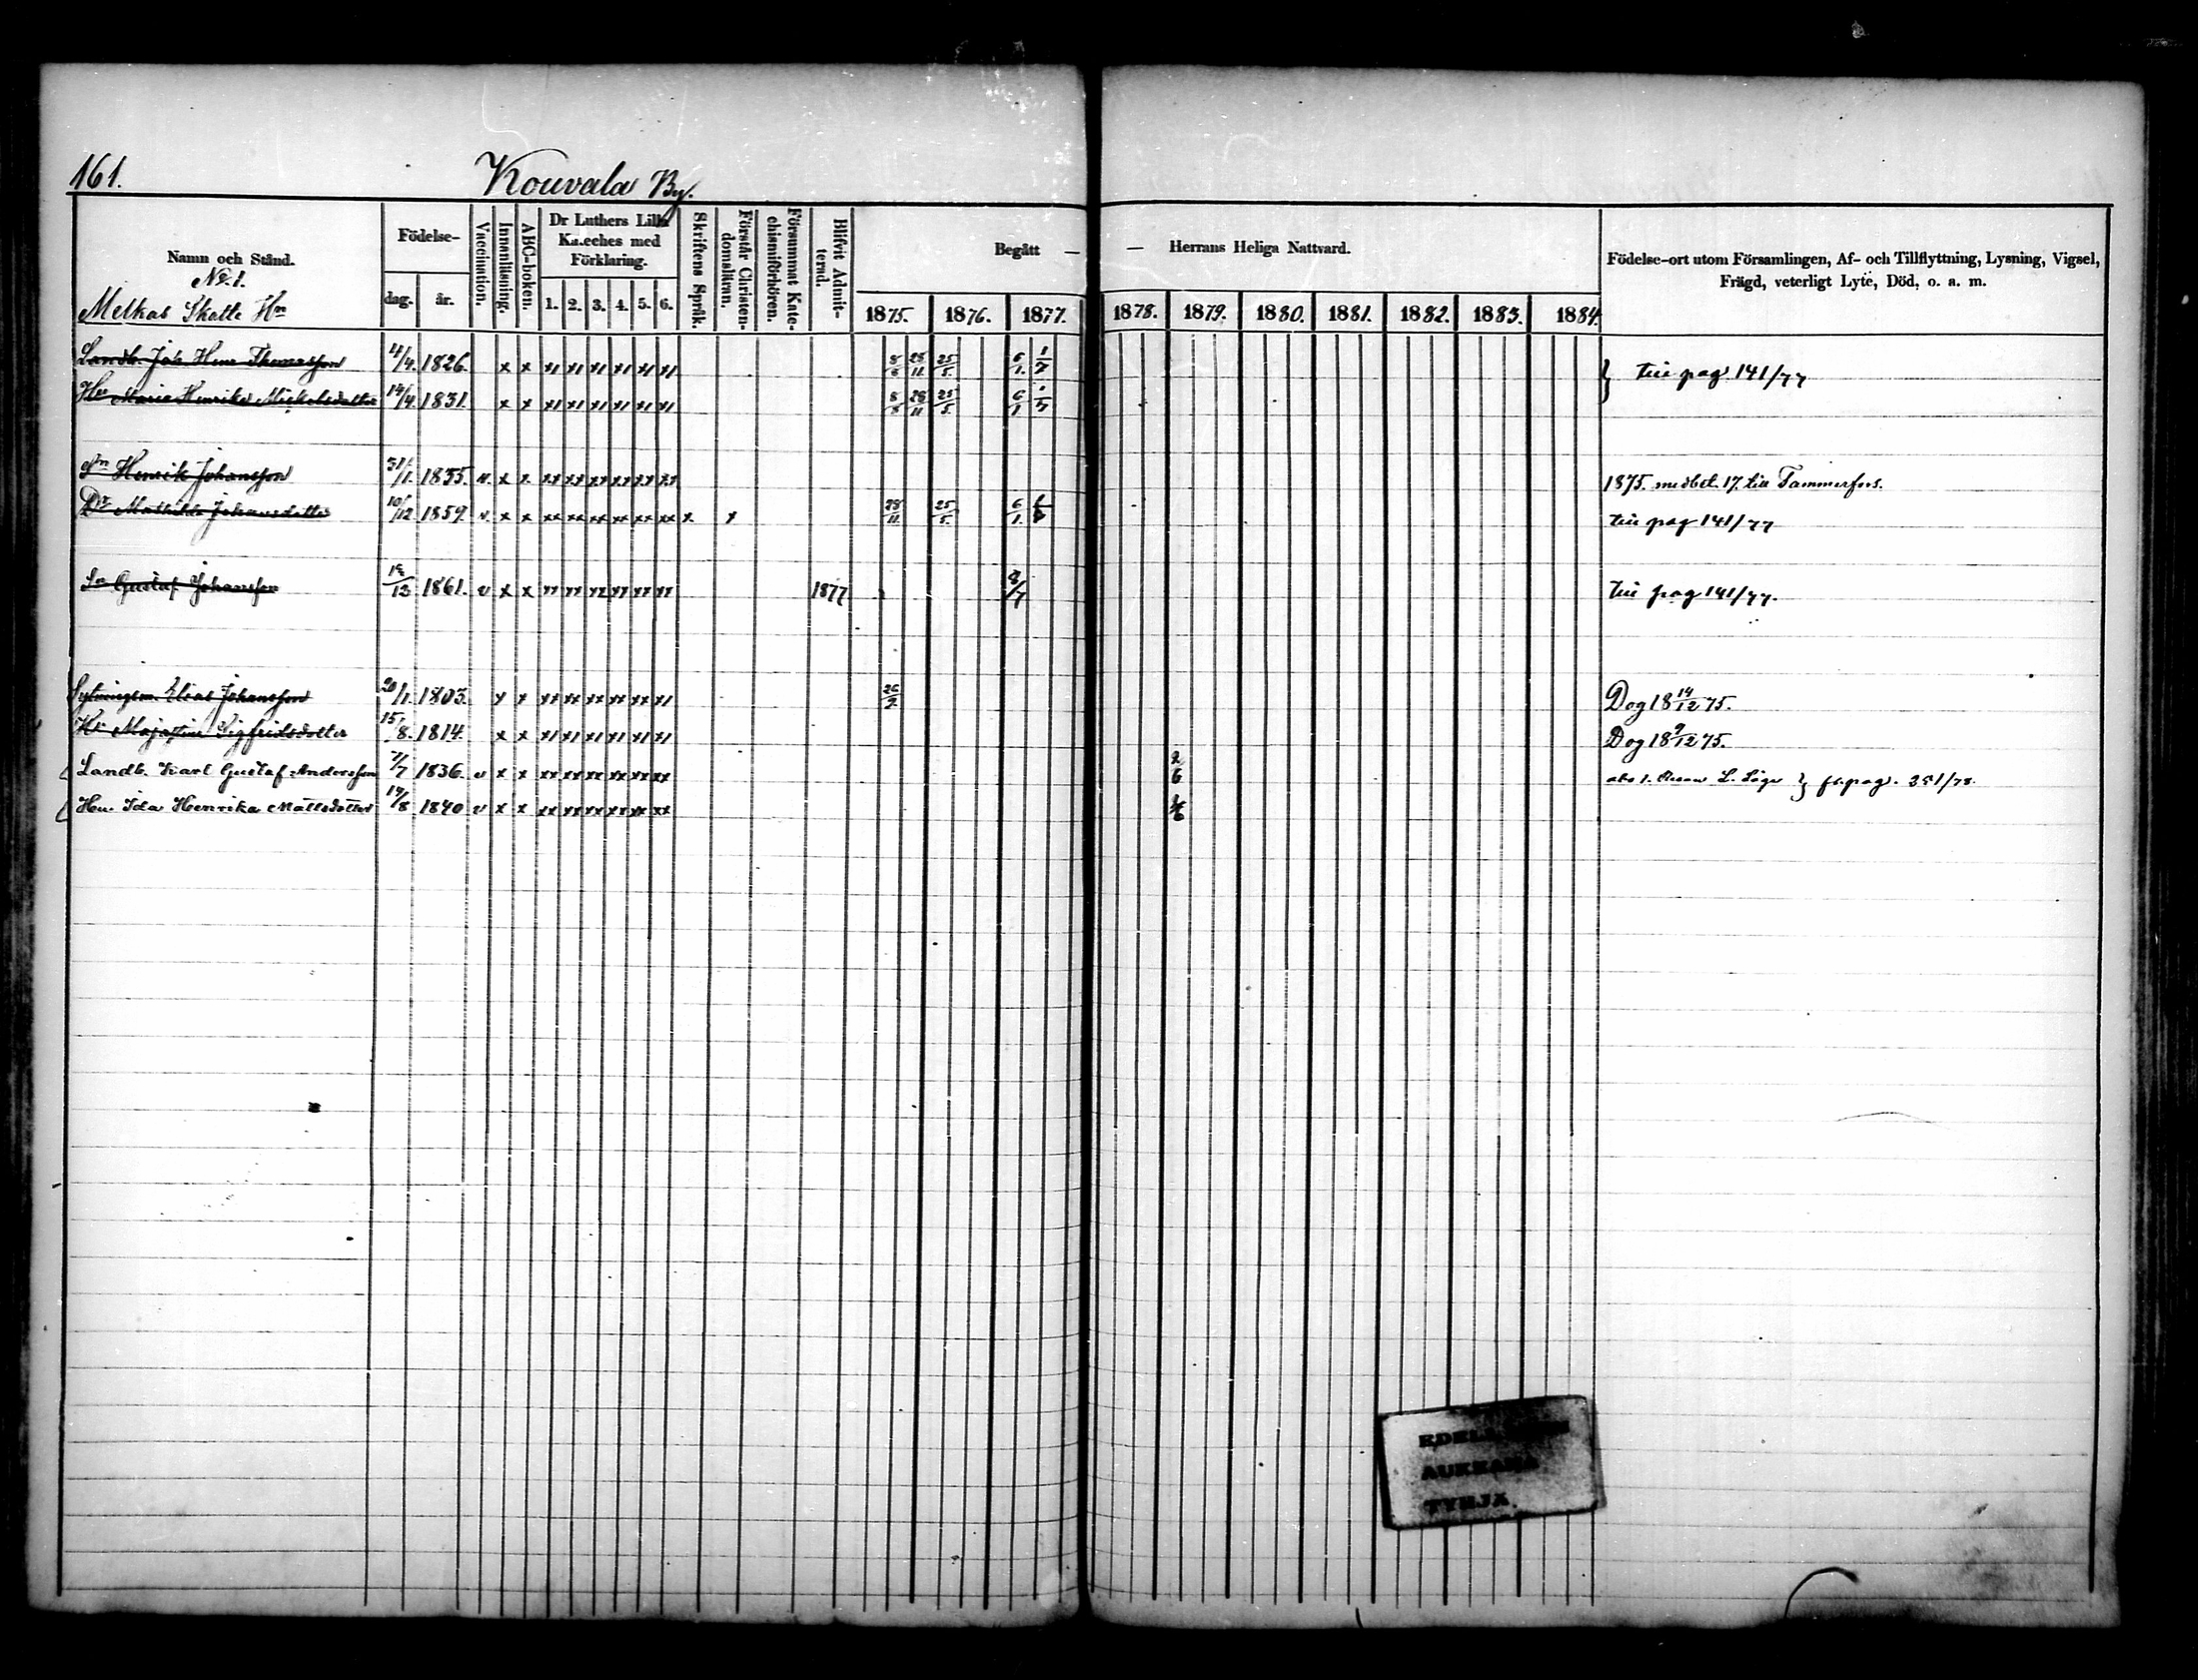 161.
Kouvala By.
Namn och Stånd.
No 1.
Melkas Skatte Hn
Födelse-
dag. år.
Vaccination.
Innanläsning.
ABC-boken.
Dr Luthers Lilla
Kateches med
Förklaring.
1. 2. 3. 4. 5. 6.
Skriftens Språk.
Förstår Christen-
domsläran.
Försummat Kate-
chismiförhören.
Blifvit Admit-
terad.
Begått —
— Herrans Heliga Nattvard.
1875. 1876. 1877. 1878. 1879. 1880. 1881. 1882. 1883. 1884.
Födelse-ort utom Församlingen, Af- och Tillflyttning, Lysning, Vigsel,
Frägd, veterligt Lyte, Död, o. a. m.
Landb. Joh. Henr Thomasson 4/4. 1826. x x 25/11 25/5. 6/1. till pag 141/77
Hu Maria Henrika Mickelsdotter 14/4 1831. x x 25/5 6/1
Sn Henrik Johansson 31/1. 1855. v. x x 1875. med bet. 17. till Tammerfors.
Dr Mathilda Johansdotter 10/12 1859. v x x xx xx xx xx xx xx x x 25/5. 6/1. till pag 141/77
Sn Gustaf Johansson 1861. v x x 1877 till pag 141/77.
Sytningsm. Elias Johansson 20/1. 1803. x x Dog 18 14/12 75.
Hu Maja Sigfridsdotter 15/8. 1814. x x Dog 18 9/12 75.
Landb. Karl Gustaf Andersson 1836. v x x xx xx xx xx xx xx
Hu. Ida Henrika Mattsdotter 1840 v x x xx xx xx xx xx xx
AUKEAMA
TYHJÄ